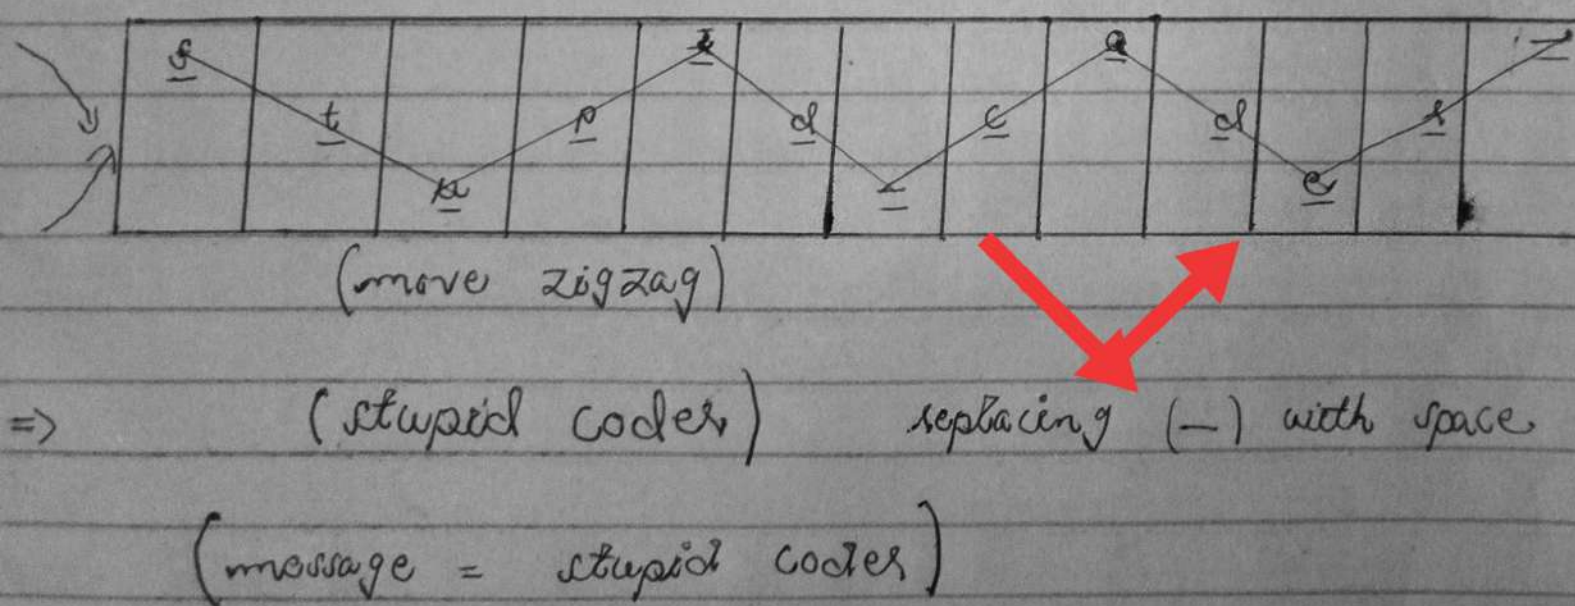 s i o _
t p d c d r
u _ e
(move zigzag)
=> (stupid coder) replacing (—) with space
(message = stupid coder)